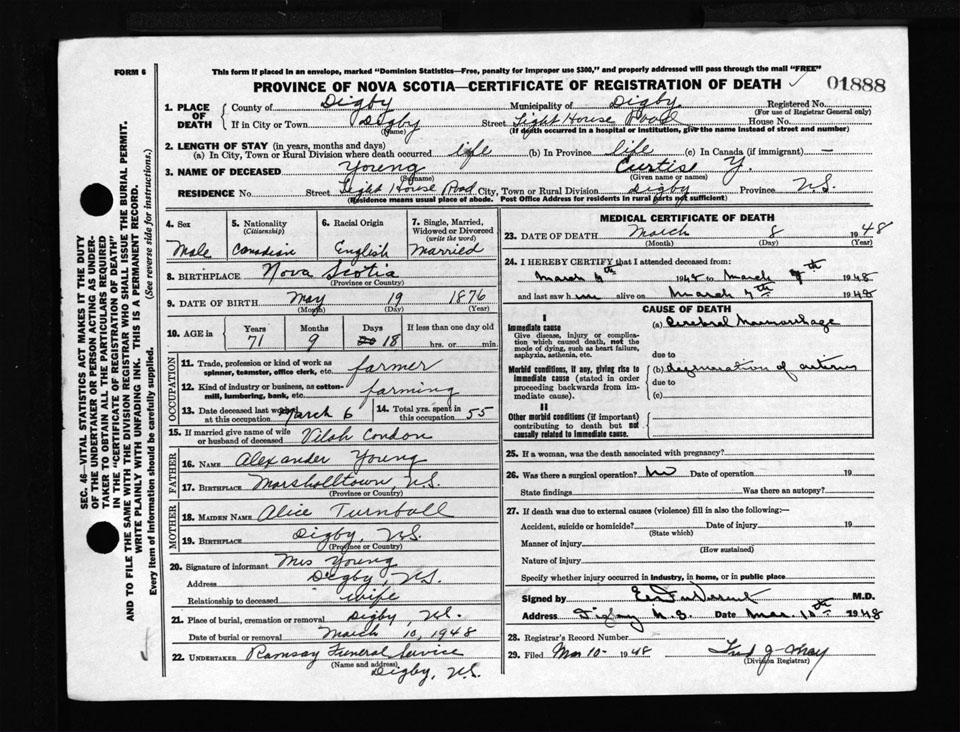 FORM 6
This form if placed in an envelope, marked "Dominion Statistics—Free, penalty for improper use $300," and properly addressed will pass through the mail "FREE"
PROVINCE OF NOVA SCOTIA—CERTIFICATE OF REGISTRATION OF DEATH 01888
1. PLACE OF DEATH { County of Digby Municipality of Digby Registered No.
(For use of Registrar General only)
If in City or Town Digby Street Light House Road House No.
(Name) (If death occurred in a hospital or institution, give the name instead of street and number)
2. LENGTH OF STAY (in years, months and days)
(a) In City, Town or Rural Division where death occurred life (b) In Province life (c) In Canada (if immigrant) —
3. NAME OF DECEASED Young Curtiss Y.
(Surname) (Given name or names)
RESIDENCE No. Street Light House Road City, Town or Rural Division Digby Province N.S.
(Residence means usual place of abode. Post Office Address for residents in rural parts not sufficient)
SEC. 46—VITAL STATISTICS ACT MAKES IT THE DUTY
OF THE UNDERTAKER OR PERSON ACTING AS UNDER-
TAKER TO OBTAIN ALL THE PARTICULARS REQUIRED
IN THE "CERTIFICATE OF REGISTRATION OF DEATH"
AND TO FILE THE SAME WITH THE DIVISION REGISTRAR WHO SHALL ISSUE THE BURIAL PERMIT.
WRITE PLAINLY WITH UNFADING INK. THIS IS A PERMANENT RECORD.
Every item of information should be carefully supplied. (See reverse side for instructions.)
4. Sex 5. Nationality (Citizenship) 6. Racial Origin 7. Single, Married, Widowed or Divorced (write the word)
Male Canadian English Married
8. BIRTHPLACE Nova Scotia
(Province or Country)
9. DATE OF BIRTH May 19 1876
(Month) (Day) (Year)
10. AGE in Years Months Days If less than one day old
71 9 20 18 hrs. or min.
OCCUPATION
11. Trade, profession or kind of work as spinner, teamster, office clerk, etc. farmer
12. Kind of industry or business, as cotton-mill, lumbering, bank, etc. farming
13. Date deceased last worked at this occupation March 6 14. Total yrs. spent in this occupation 55
15. If married give name of wife or husband of deceased Vilah Condon
FATHER
16. NAME Alexander Young
17. BIRTHPLACE Marshalltown, N.S.
(Province or Country)
MOTHER
18. MAIDEN NAME Alice Turnbull
19. BIRTHPLACE Digby, N.S.
(Province or Country)
20. Signature of informant Mrs Young
Address Digby, N.S.
Relationship to deceased wife
21. Place of burial, cremation or removal Digby, N.S.
Date of burial or removal March 10, 1948
22. UNDERTAKER Ramsay Funeral Service
(Name and address) Digby, N.S.
MEDICAL CERTIFICATE OF DEATH
23. DATE OF DEATH March 8 1948
(Month) (Day) (Year)
24. I HEREBY CERTIFY that I attended deceased from:
March th 1948 to March 7th 1948
and last saw h alive on March 7th 1948
CAUSE OF DEATH
I
Immediate cause (a) Cerebral Haemorrhage
Give disease, injury or complication which caused death, not the mode of dying, such as heart failure, asphyxia, asthenia, etc.
due to
Morbid conditions, if any, giving rise to immediate cause (stated in order proceeding backwards from immediate cause). (b) degeneration of arteries
due to
(c)
II
Other morbid conditions (if important) contributing to death but not causally related to immediate cause.
25. If a woman, was the death associated with pregnancy?
26. Was there a surgical operation? no Date of operation 19
State findings Was there an autopsy?
27. If death was due to external causes (violence) fill in also the following:—
Accident, suicide or homicide? Date of injury 19
(State which)
Manner of injury
(How sustained)
Nature of injury
Specify whether injury occurred in industry, in home, or in public place
Signed by M.D.
Address Digby N.S. Date Mar. 10th 1948
28. Registrar's Record Number
29. Filed Mar 10 1948 Fred J. May
(Division Registrar)